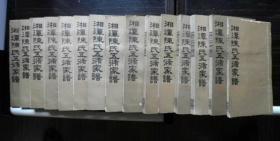 湘潭陳氏五修家譜
湘潭陳氏五修家譜
湘潭陳氏五修家譜
湘潭陳氏五修家譜
湘潭陳氏五修家譜
湘潭陳氏五修家譜
湘潭陳氏五修家譜
湘潭陳氏五修家譜
湘潭陳氏五修家譜
湘潭陳氏五修家譜
湘潭陳氏五修家譜
湘潭陳氏五修家譜
湘潭陳氏五修家譜
湘潭陳氏五修家譜